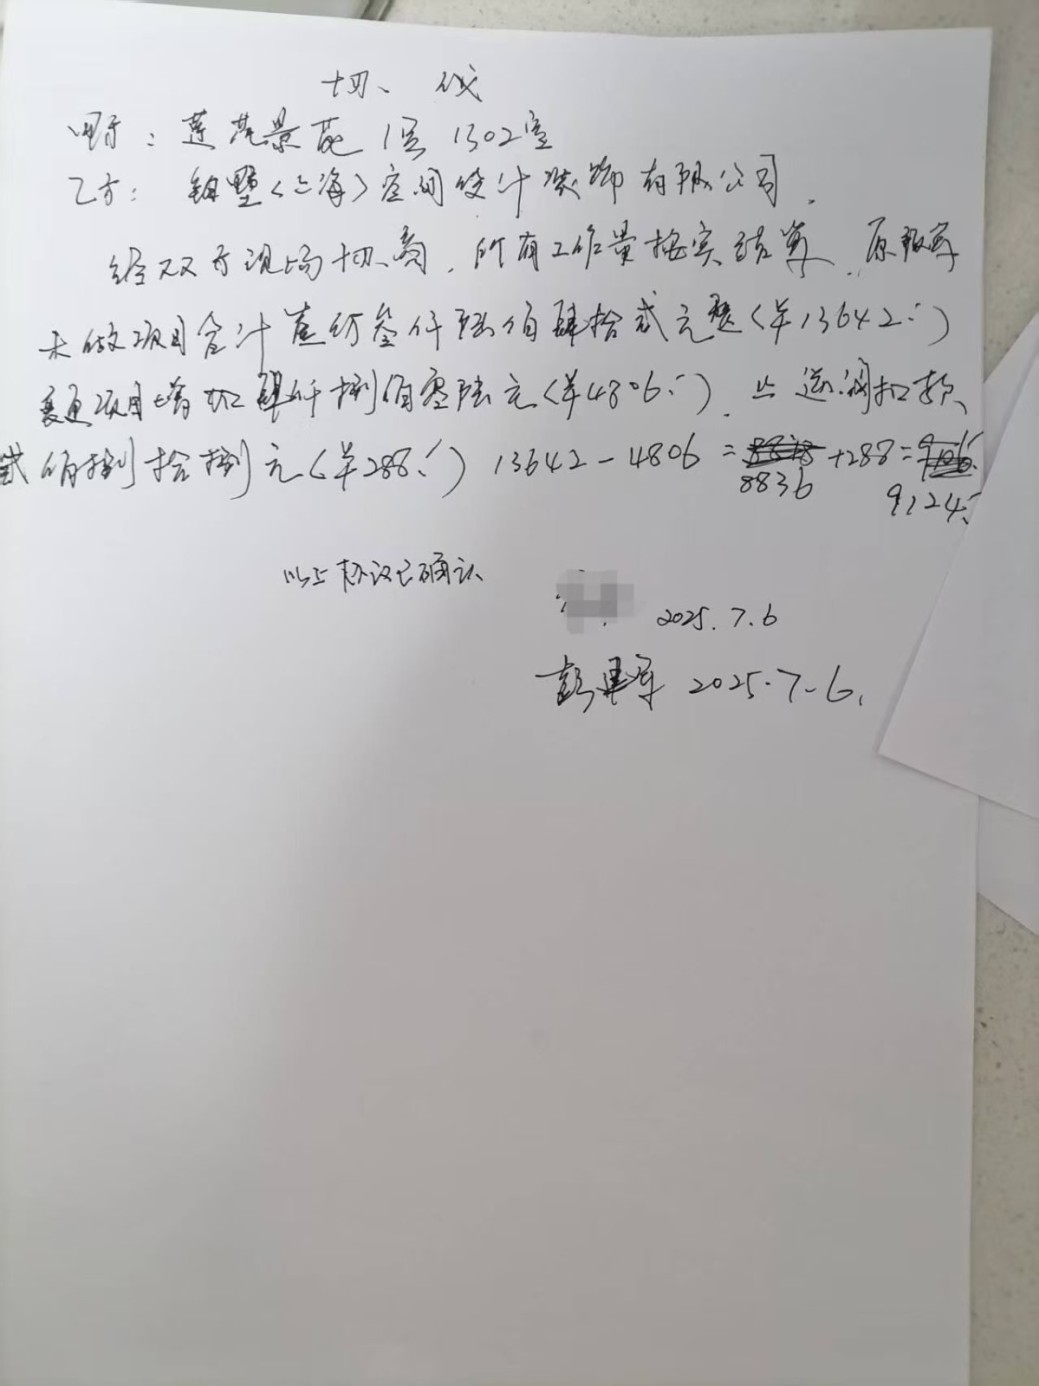 协议
甲方：莲花景苑1号1302室
乙方：铂墅（上海）空间设计装饰有限公司．
经双方现场协商，所有工作量按实结算．原预算
未做项目合计壹仿叁仟陆佰肆拾贰元整（￥13642.）
变更项目增加肆仟捌佰零陆元（￥4806.）．止逆阀扣款
贰佰捌拾捌元（￥288.）13642-4806=8836+288=9124.
以上协议已确认
2025.7.6
彭军 2025.7.6.